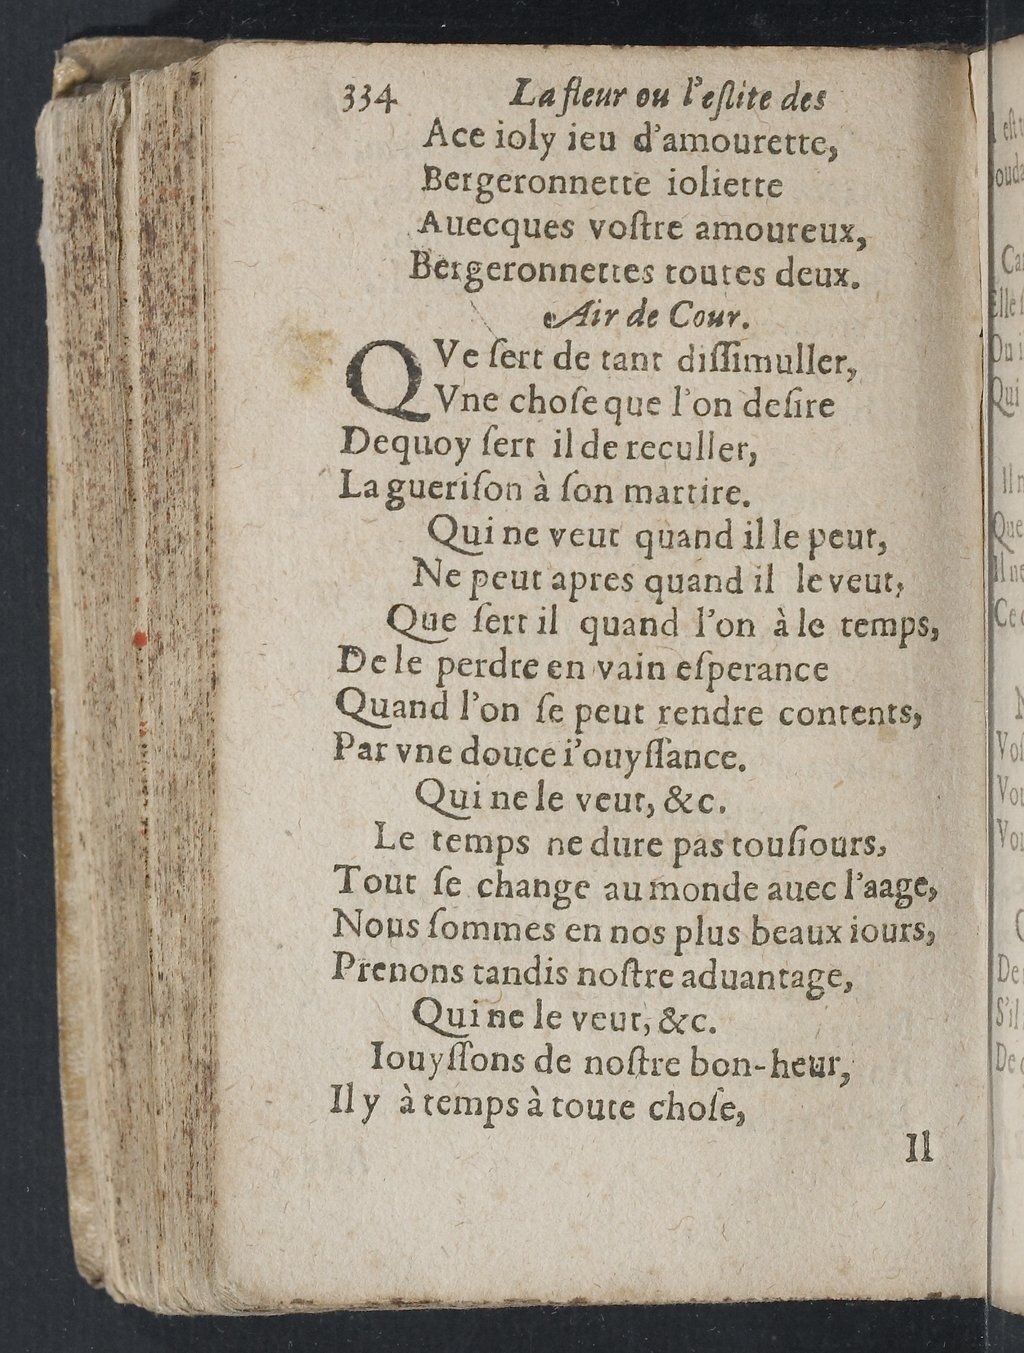 334 La fleur ou l'eslite des
A ce ioly ieu d'amourette,
Bergeronnette ioliette
Auecques voſtre amoureux,
Bergeronnettes toutes deux.
Air de Cour.
QVe ſert de tant diſſimuller,
Vne choſe que l'on deſire
Dequoy ſert il de reculler,
La gueriſon à ſon martire.
Qui ne veut quand il le peut,
Ne peut apres quand il le veut,
Que ſert il quand l'on à le temps,
De le perdre en vain eſperance
Quand l'on ſe peut rendre contents,
Par vne douce i'ouyſſance.
Qui ne le veut, &c.
Le temps ne dure pas touſiours,
Tout ſe change au monde auec l'aage,
Nous ſommes en nos plus beaux iours,
Prenons tandis noſtre aduantage,
Qui ne le veut, &c.
Iouyſſons de noſtre bon-heur,
Il y à temps à toute choſe,
Il